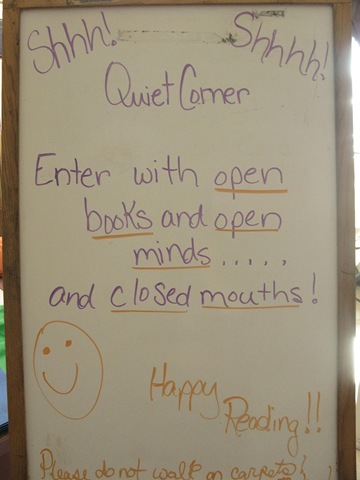 Shhh! Shhhh!
Quiet Corner
Enter with open
books and open
minds.....
and closed mouths!
Happy
Reading!!
Please do not walk on carpets!